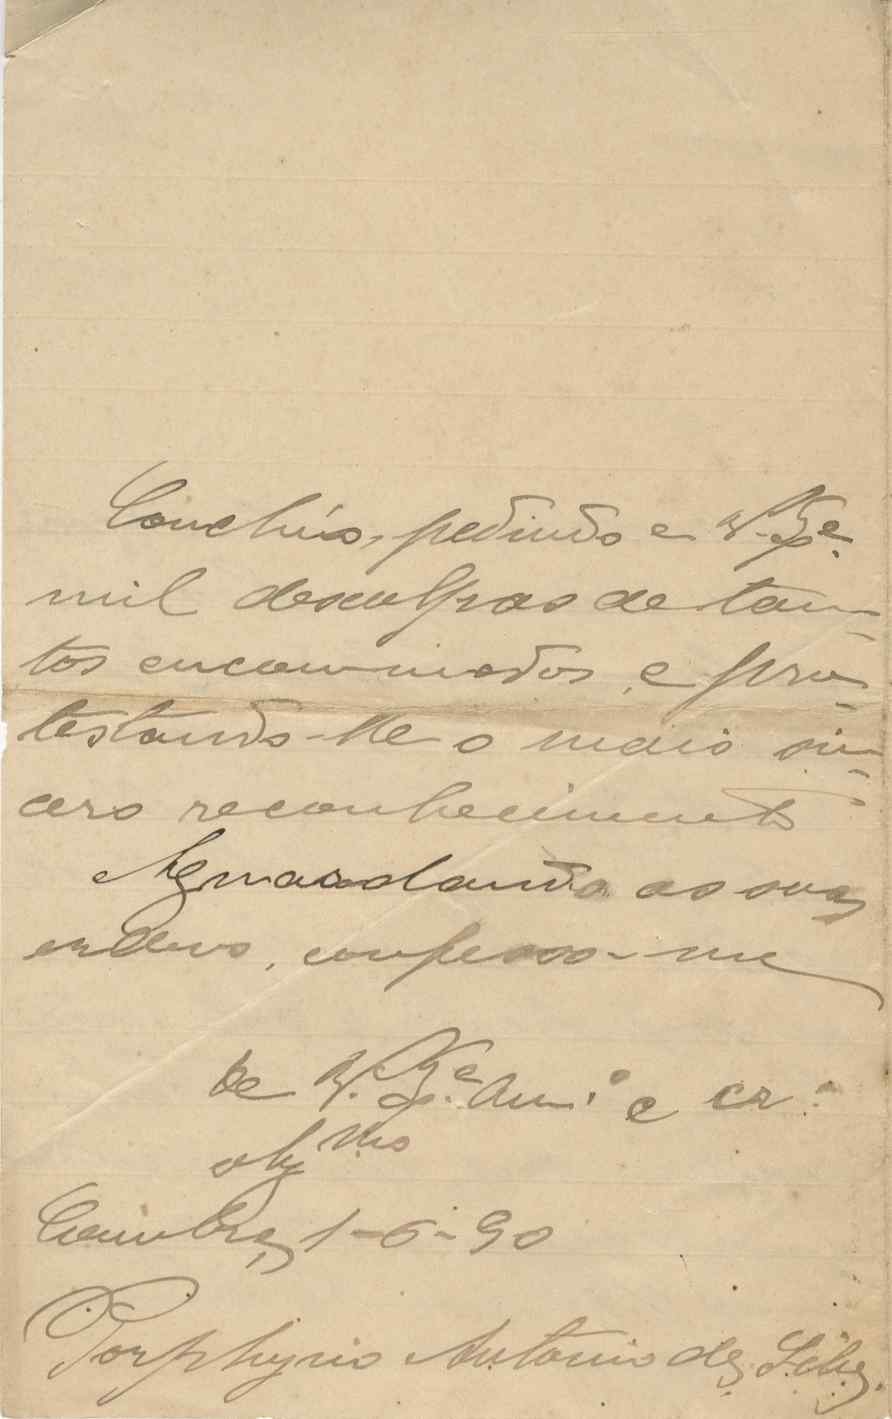 Concluo, pedindo a V. Ex.ª
mil desculpas de tan-
tos encommodos, e pro-
testando-lhe o mais sin-
cero reconhecimento
Aguardando as suas
ordens, confesso-me
De V. Ex.ª Am.º e cr.º
obg.mo
Coimbra, 1-6-90
Porphyrio Antonio da Silva.